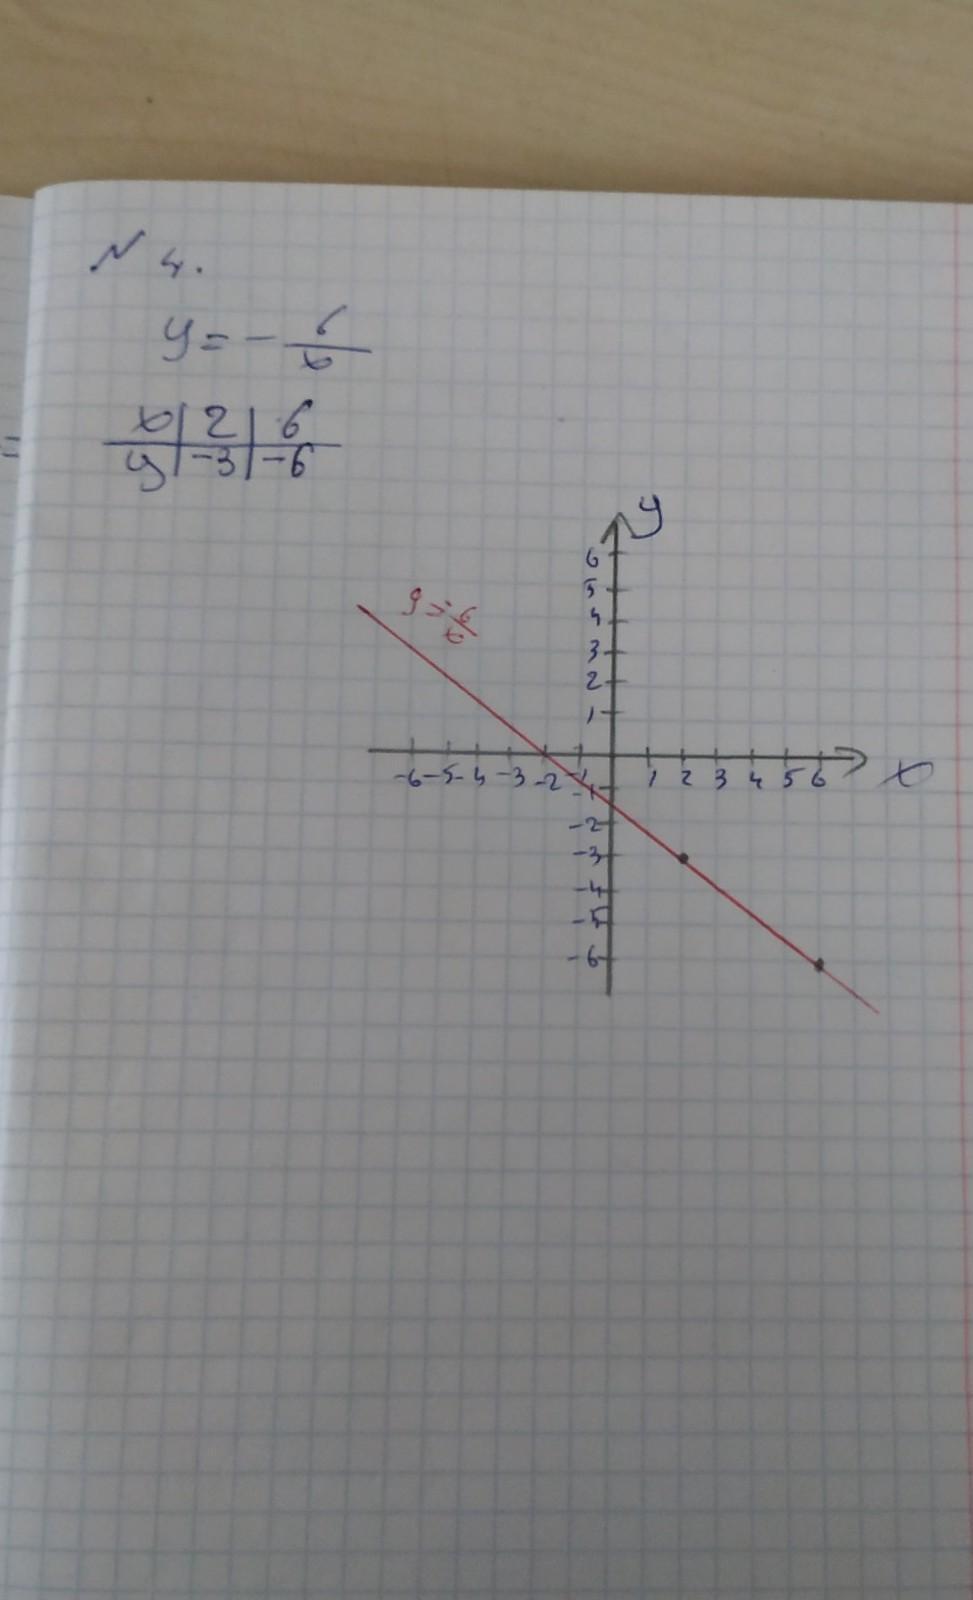 № 4.
y = - 6/x
x | 2 | 6
y | -3 | -6
y
6
5
4
3
2
1
y = -6/x
-6 -5 -4 -3 -2 -1 1 2 3 4 5 6 x
-1
-2
-3
-4
-5
-6
=